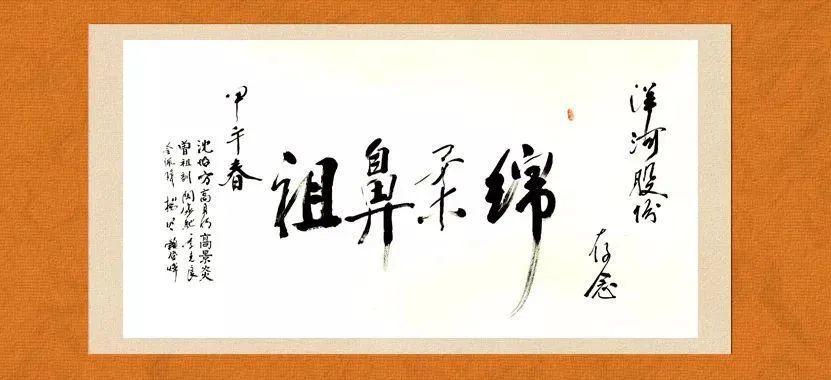 洋河股份
存念
绵柔鼻祖
甲午春
沈怡方 高月明 高景炎
曾祖训
金佩璋